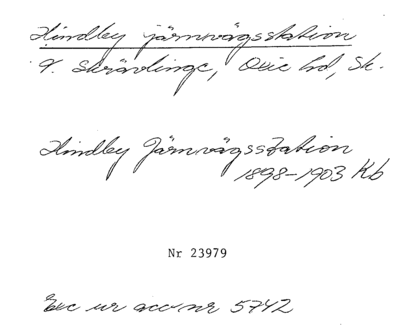 Hindley järnvägsstation
V. Skrävlinge, Oxie hd, Sk.
Hindby Järnvägsstation
1898-1903 Kb
Nr 23979
Exc ur acc nr 5742